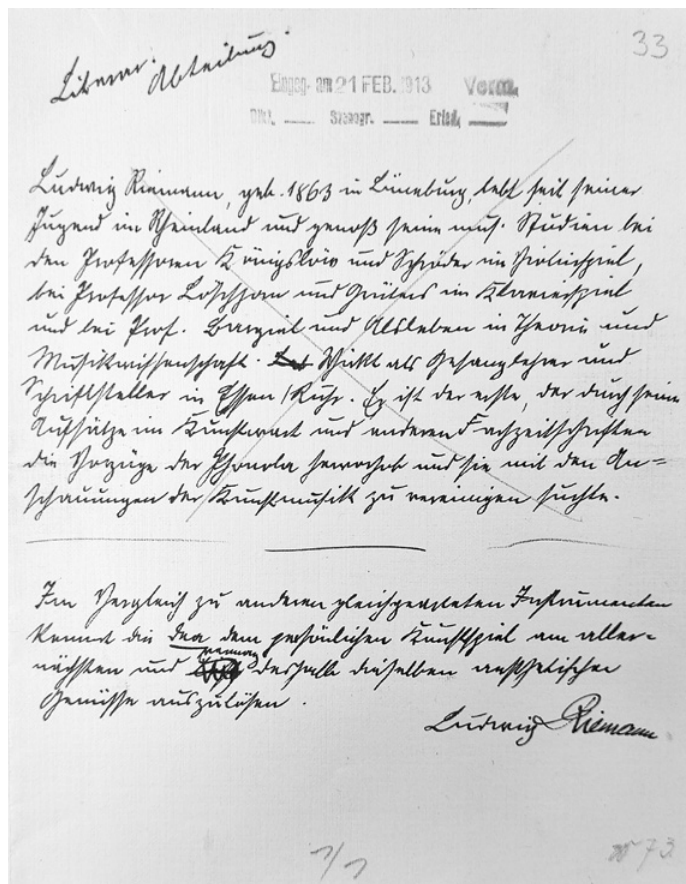 33
Literar. Abteilung.
Eingeg. am 21 FEB. 1913 Vorm.
Dikt. Stenogr. Erled.
Ludwig Riemann, geb. 1863 in Lüneburg, lebt seit seiner
Jugend im Rheinland und genoß seine mus. Studien bei
den Professoren Königslöw und Schröder im Violinspiel,
bei Professor Löschhorn und Grüters im Klavierspiel
und bei Prof. Bargiel und Alsleben in Theorie und
Musikwissenschaft. Wirkt als Gesanglehrer und
Schriftsteller in Essen/Ruhr. Er ist der erste, der durch seine
Aufsätze im Kunstwart und anderen Fachzeitschriften
die Vorzüge der Phonola hervorhob und sie mit den An=
schauungen der Kunstmusik zu vereinigen suchte.
Im Vergleich zu anderen gleichgearteten Instrumenten
kommt die Dea dem persönlichen Kunstspiel am aller=
nächsten und vermag deshalb dieselben ästhetischen
Genüsse auszulösen.
Ludwig Riemann
1/1
73